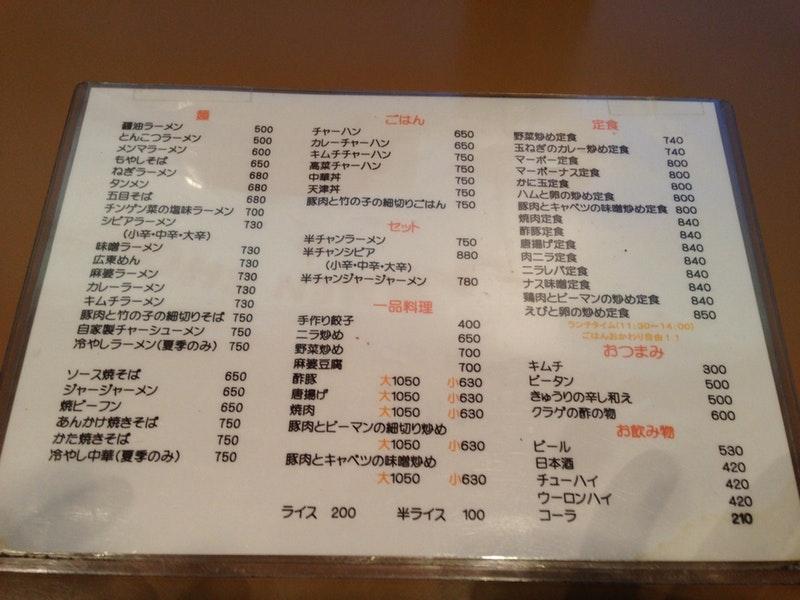 麺
醤油ラーメン 500
とんこつラーメン 500
メンマラーメン 600
もやしそば 650
ねぎラーメン 680
タンメン 680
五目そば 680
チンゲン菜の塩味ラーメン 700
シビアラーメン 730
(小辛・中辛・大辛)
味噌ラーメン 730
広東めん 730
麻婆ラーメン 730
カレーラーメン 730
キムチラーメン 730
豚肉と竹の子の細切りそば 750
自家製チャーシューメン 750
冷やしラーメン(夏季のみ) 750
ソース焼そば 650
ジャージャーメン 650
焼ビーフン 650
あんかけ焼きそば 750
かた焼きそば 750
冷やし中華(夏季のみ) 750
ごはん
チャーハン 650
カレーチャーハン 750
キムチチャーハン 750
高菜チャーハン 750
中華丼 750
天津丼 750
豚肉と竹の子の細切りごはん 750
セット
半チャンラーメン 750
半チャンシビア 880
(小辛・中辛・大辛)
半チャンジャージャーメン 780
一品料理
手作り餃子 400
ニラ炒め 650
野菜炒め 700
麻婆豆腐 700
酢豚 大1050 小630
唐揚げ 大1050 小630
焼肉 大1050 小630
豚肉とピーマンの細切り炒め
大1050 小630
豚肉とキャベツの味噌炒め
大1050 小630
ライス 200 半ライス 100
定食
野菜炒め定食 740
玉ねぎのカレー炒め定食 740
マーボー定食 800
マーボーナス定食 800
かに玉定食 800
ハムと卵の炒め定食 800
豚肉とキャベツの味噌炒め定食 800
焼肉定食 840
酢豚定食 840
唐揚げ定食 840
肉ニラ定食 840
ニラレバ定食 840
ナス味噌定食 840
鶏肉とピーマンの炒め定食 840
えびと卵の炒め定食 850
ランチタイム(11:30〜14:00)
ごはんおかわり自由！！
おつまみ
キムチ 300
ピータン 500
きゅうりの辛し和え 500
クラゲの酢の物 600
お飲み物
ビール 530
日本酒 420
チューハイ 420
ウーロンハイ 420
コーラ 210